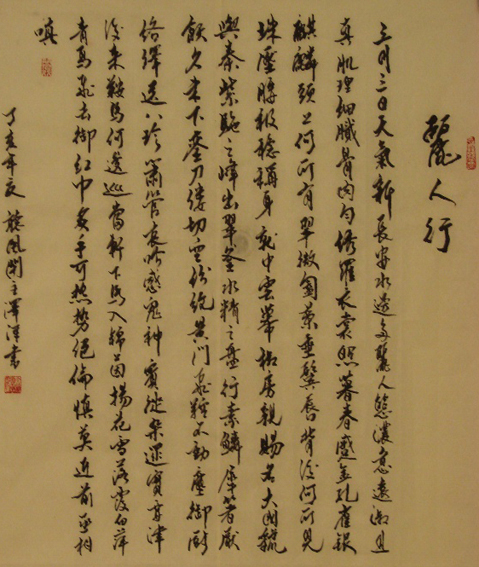 麗人行
三月三日天氣新長安水邊多麗人態濃意遠淑且
真肌理細膩骨肉勻綉羅衣裳照暮春蹙金孔雀銀
麒麟頭上何所有翠微㔩葉垂鬢唇背後何所見
珠壓腰衱穩稱身就中雲幕椒房親賜名大國虢
與秦紫駝之峰出翠釜水精之盤行素鱗犀箸厭
飫久未下鑾刀縷切空紛綸黃門飛鞚不動塵御厨
絡繹送八珍簫管哀吟感鬼神賓從雜遝實要津
後來鞍馬何逡巡當軒下馬入錦茵楊花雪落覆白萍
青鳥飛去銜紅巾炙手可熱勢絕倫慎莫近前丞相
嗔
丁亥年夏聽風閣主澤洋書